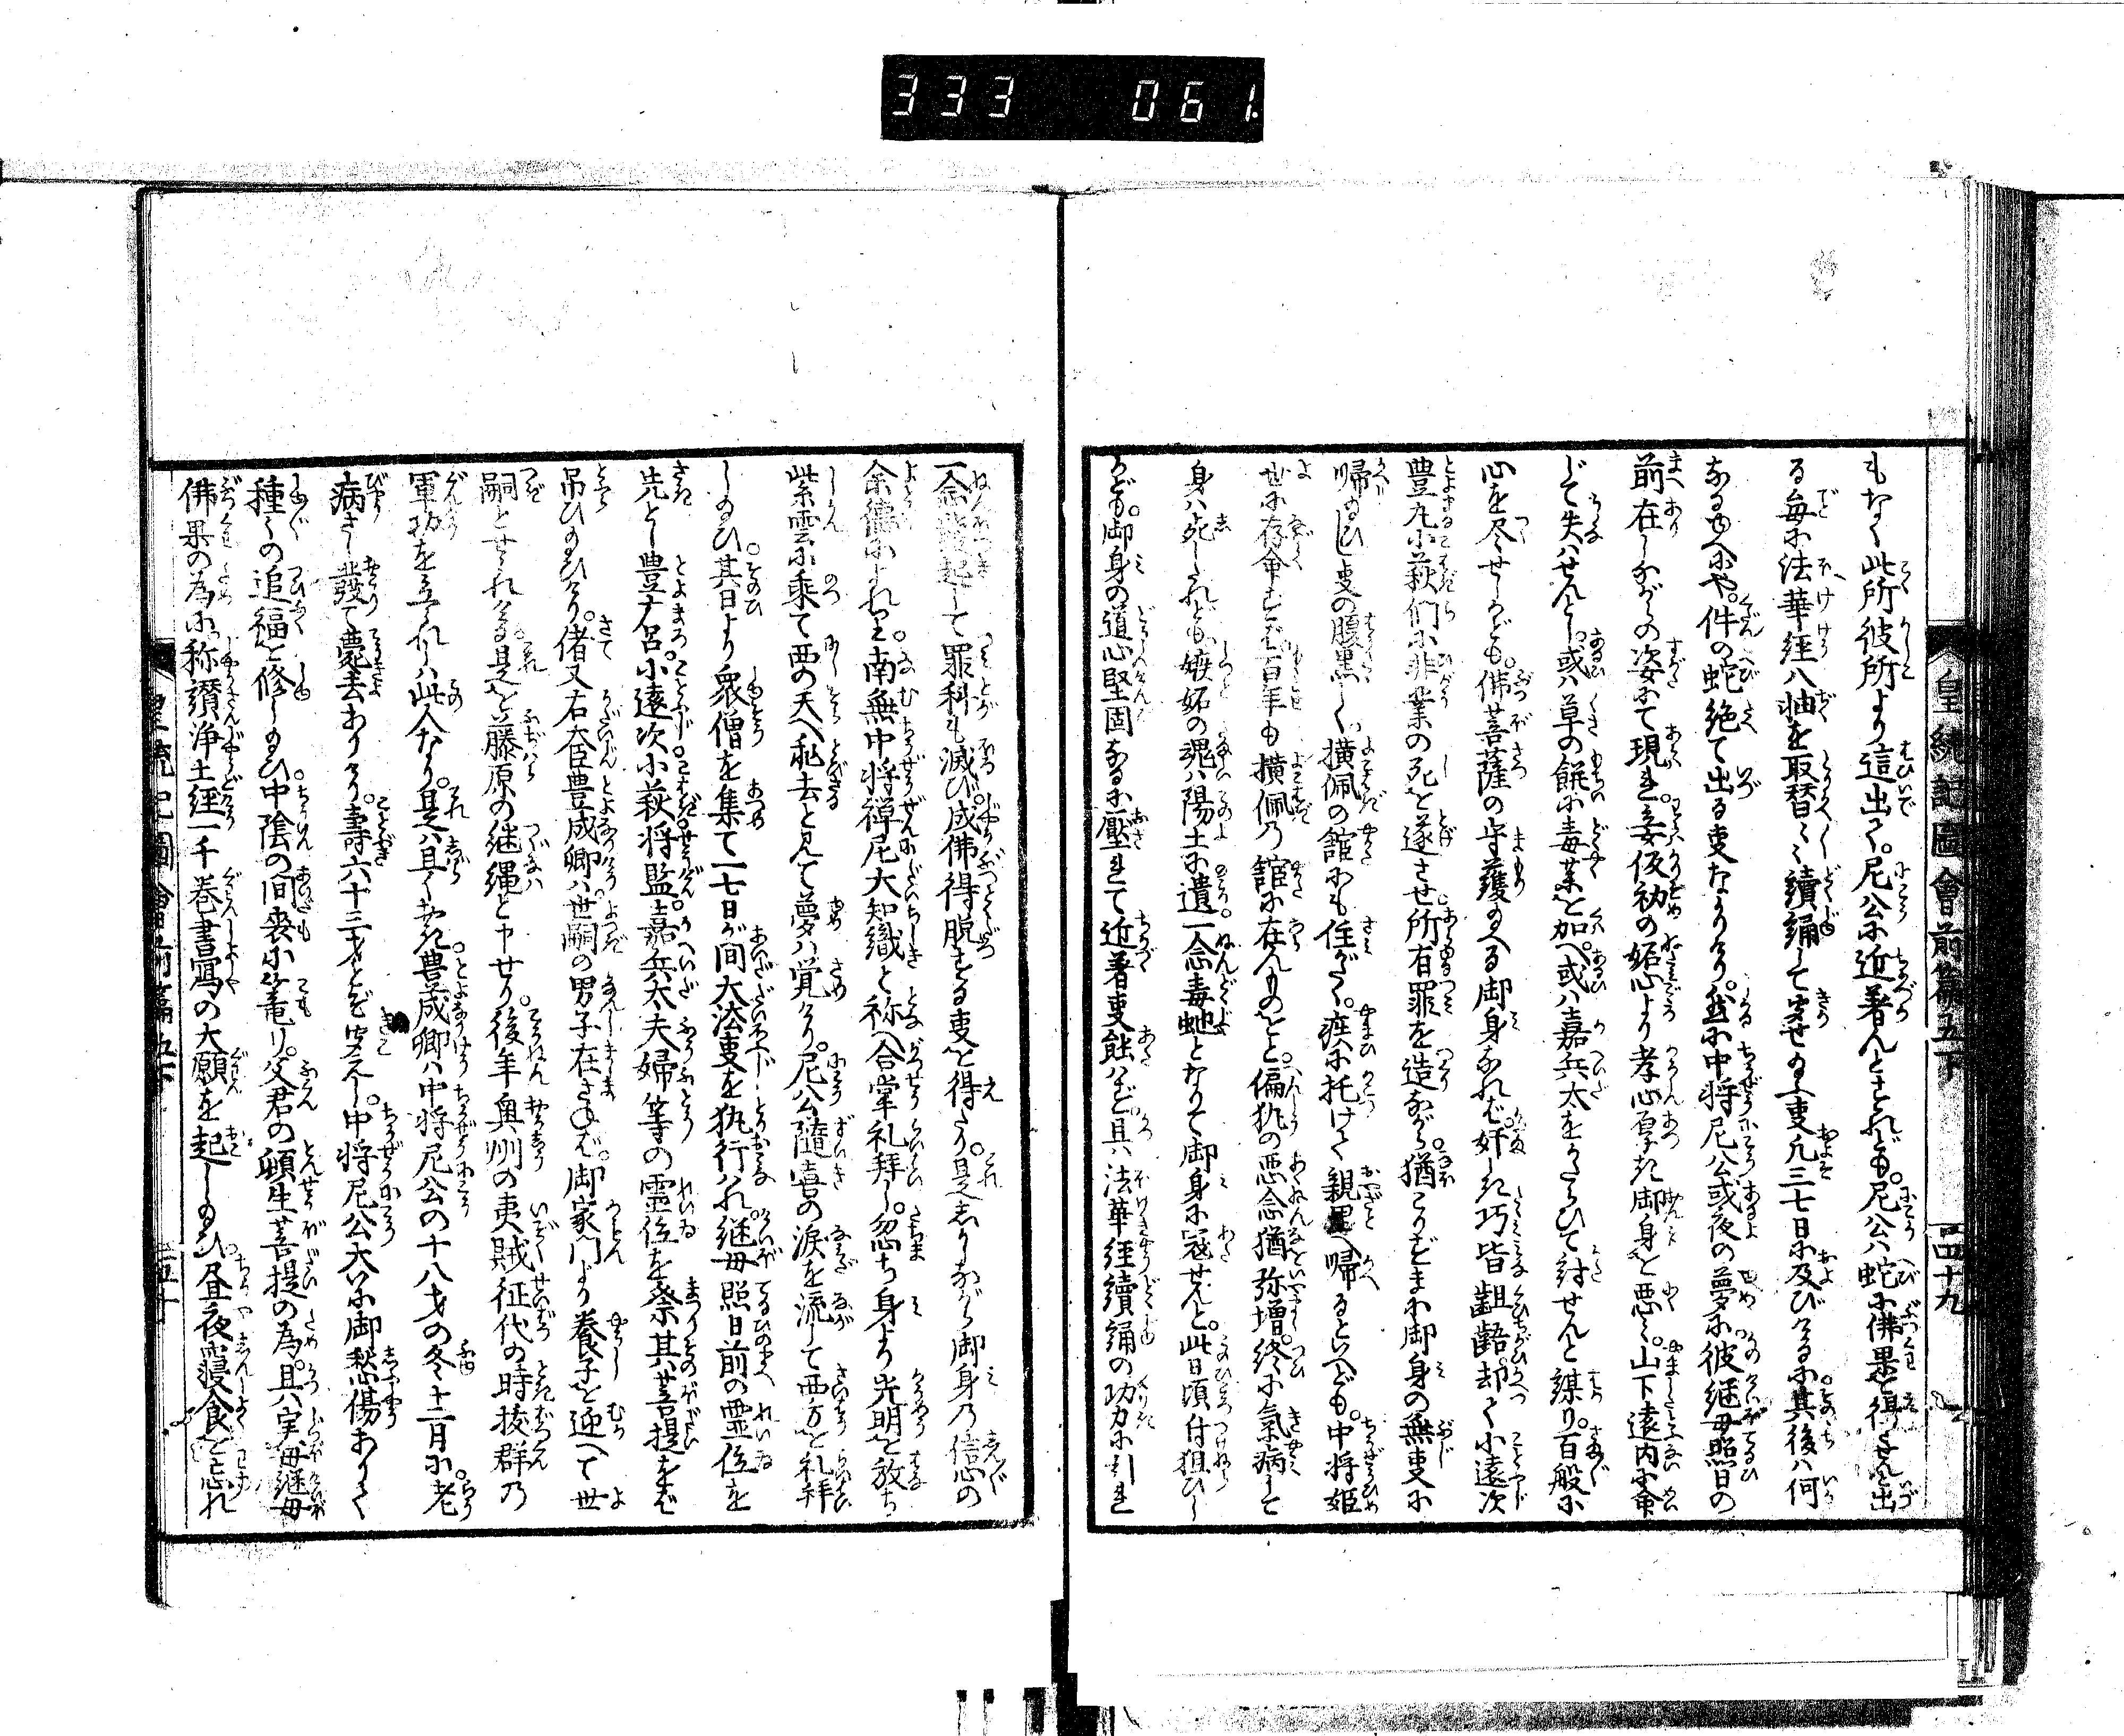 333 061.
皇統記圖會前篇五下
四十九
もなく此所彼所より這出て。尼公に近著んとされども。尼公ハ蛇に佛果を得させんと出
る毎に法華経八軸を取替く讀誦して聞せ給ふ事凡三七日に及びけるに其後ハ何
なるゆへにや。件の蛇絶て出る事なかりけり。然に中将尼公或夜の夢に彼継母照日の
前在しながらの姿にて現れ。妾仮初の妬心より孝心厚き御身を悪く。山下遠内に命
じて失ハせんとし。或ハ草の餅に毒薬を加へ。或ハ嘉兵太をかたらひて討せんと謀り。百般に
心を尽せしかども。佛菩薩の守護ある御身なれば奸しき巧皆齟齬。却て小遠次
豊丸小萩們に非業の死を遂させ。所有罪を造ながら。猶こりずまに御身の無事に
帰給ひし事の腹黒く。横佩の舘にも住がたく。疾に托けて親里へ帰るといへども。中将姫
世に存命せば百年も横佩の舘に在んものをと。偏執の悪念猶弥増。終に氣病して
身ハ死しけれども嫉妬の魂ハ陽土に遺。一念毒虵となりて御身に寇せんと。此日頃付狙ひし
かども。御身の道心堅固なるに壓れて近著事能ハず。且ハ法華経讀誦の功力に引れ
一念發起して罪科も滅び。成佛得脱する事を得たり。是しかしながら御身の信心の
余徳によれり。南無中将禅尼大知識と称へ合掌礼拜し。忽ち身より光明を放ち
紫雲に乗て西の天へ飛去と見て夢ハ覚けり。尼公隨喜の涙を流して西方を礼拜
し給ひ。其日より衆僧を集て一七日が間大法事を執行ハれ。継母照日前の霊位を
先とし豊寿呂。小遠次。小萩。将監。嘉兵太夫婦等の霊位を祭。其菩提をぞ
吊ひ給ひけり。偖又右大臣豊成卿ハ。世嗣の男子在さねば。御家門より養子を迎へて世
嗣とせられける。是を藤原の継縄と申せり。後年奥州の夷賊征代の時抜群の
軍功を立られしハ此人なり。是ハ且く措。豊成卿ハ中将尼公の十八才の冬十二月に。老
病さし發て薨去ありけり。壽六十三才とぞ聞えし。中将尼公大に御愁傷ありて
種々の追福を修し給ひ。中陰の間喪に篭り。父君の頓生菩提の為。且ハ実母継母
佛果の為に称讃浄土経一千巻書寫の大願を起し給ひ。昼夜寝食を忘れ
皇統記圖會前篇五下
五十